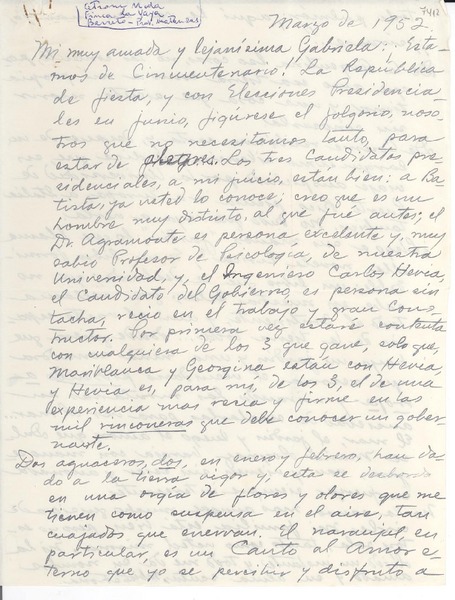 7412
Finca La Vaya
Marzo de 1952
Mi muy amada y lejanísima Gabriela: ¡Esta-
mos de Cincuentenario! La República
de fiesta, y con Elecciones Presidencia-
les en junio, figúrese el jolgorio, noso-
tros que no necesitamos tanto, para
estar de pláceres. Los tres Candidatos pre-
sidenciales, a mi juicio, están bien: a Ba-
tista, ya usted lo conoce; creo que es un
hombre muy distinto, al que fué antes; el
Dr. Agramonte es persona excelente y, muy
sabio Profesor de Psicología, de nuestra
Universidad, y, el Ingeniero Carlos Hevia,
el Candidato del Gobierno, es persona sin
tacha, recio en el trabajo y gran Cons-
tructor. Por primera vez estaré contenta
con cualquiera de los 3 que gane, solo que,
Mariblanca y Georgina están con Hevia,
y Hevia es, para mí, de los 3, el de una
experiencia mas recia y firme en las
mil rinconeras que debe conocer un gober-
nante.
Dos aguaceros, dos, en enero y febrero, han da-
do a la tierra vigor y, esta se desbordó
en una orgía de flores y olores que me
tienen como suspensa en el aire, tan
cuajados que enervan. El naranjel, en
particular, es un Canto al Amor e-
terno que yo se percibir y disfruto a